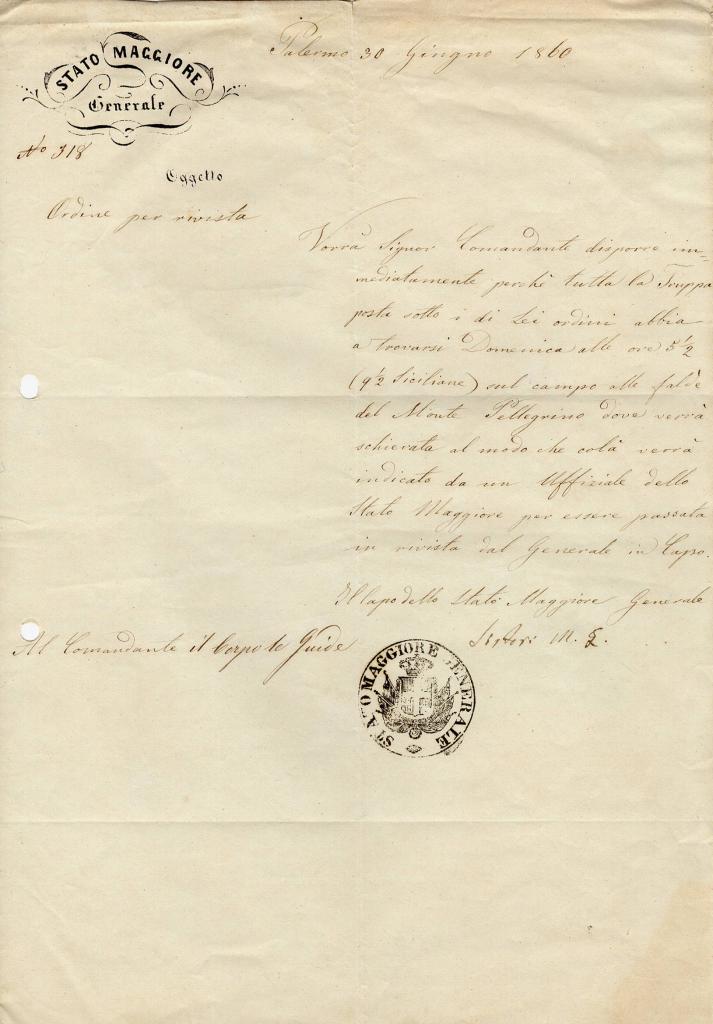 STATO MAGGIORE
Generale
Palermo 30 Giugno 1860
No 318
Oggetto
Ordine per rivista
Vorrà Signor Comandante disporre im-
mediatamente perchè tutta la Truppa
posta sotto i di Lei ordini abbia
a trovarsi Domenica alle ore 5 1/2
(9 1/2 Siciliane) sul campo alle falde
del Monte Pellegrino dove verrà
schierata al modo che colà verrà
indicato da un Uffiziale dello
Stato Maggiore per essere passata
in rivista dal Generale in Capo.
Il Capo dello Stato Maggiore Generale
Sirtori
Al Comandante il Corpo le Guide
STATO MAGGIORE GENERALE